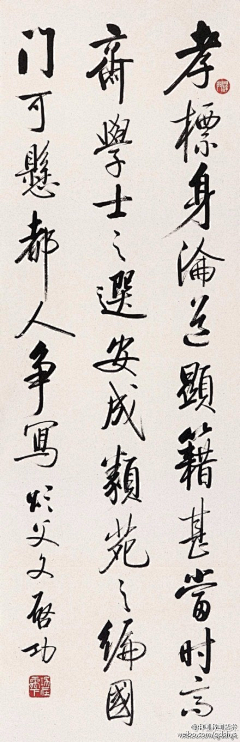 孝標身淪道顯籍甚當时高
齋學士之選安成類苑之編國
门可懸都人争寫 容父文 啓功